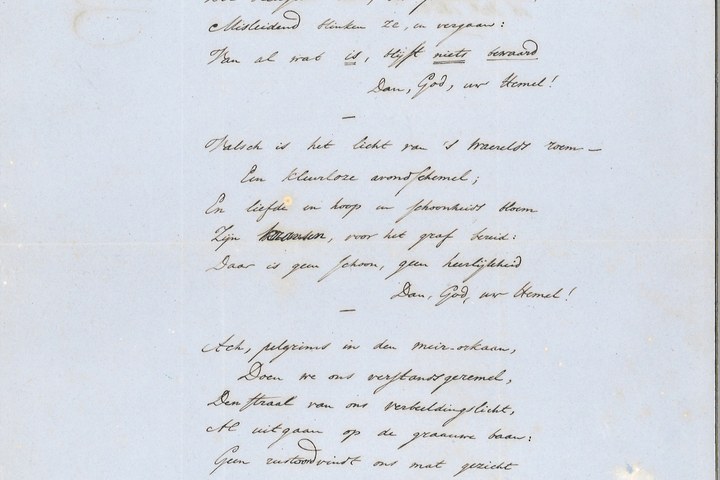 Misleidend blinken ze, en vergaan:
Van al wat is, blijft niets bewaard
Dan, God, uw Hemel!
—
Valsch is het licht van 's waerelds roem —
Een kleurloze avondschemel;
En liefde en hoop en schoonheids bloem
Zijn kransen, voor het graf bereid:
Daar is geen schoon, geen heerlijkheid
Dan, God, uw Hemel!
—
Ach, pelgrims in den meir-orkaan,
Doen we ons verstandsgeremel,
Den straal van ons verbeeldingslicht,
Al uitgaan op de graauwe baan:
Geen rustoord vindt ons mat gezicht